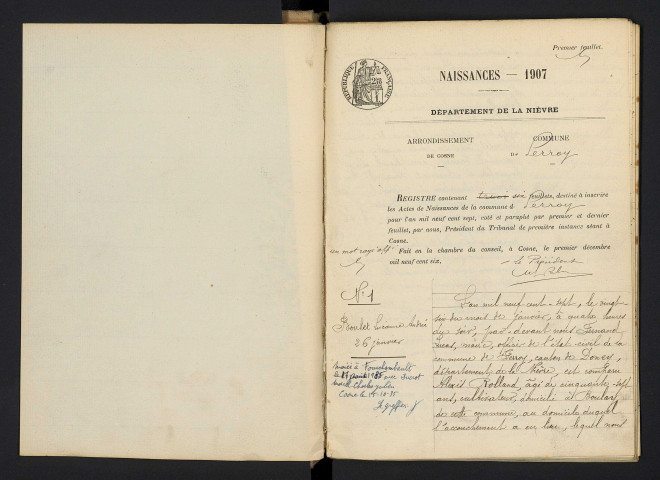 Premier feuillet.
RÉPUBLIQUE FRANÇAISE
NAISSANCES — 1907
DÉPARTEMENT DE LA NIÈVRE
ARRONDISSEMENT
DE COSNE
COMMUNE
DE Perroy
REGISTRE contenant trois six feuillets, destiné à inscrire
les Actes de Naissances de la commune d Perroy
pour l'an mil neuf cent sept, coté et paraphé par premier et dernier
feuillet, par nous, Président du Tribunal de première instance séant à
Cosne.
un mot rayé
Fait en la chambre du conseil, à Cosne, le premier décembre
mil neuf cent six,
Le Président
N° 1
26 janvier
Marié à Fourchambault
L'an mil neuf cent sept, le vingt
six du mois de janvier, à quatre heures
du soir, par-devant nous Fernand
maire, officier de l'état-civil de la
commune de Perroy, canton de Donzy,
département de la Nièvre, est comparu
Alexis Rolland, âgé de cinquante-sept
ans, cultivateur, domicilié et
de cette commune, au domicile duquel
l'accouchement a eu lieu, lequel nous